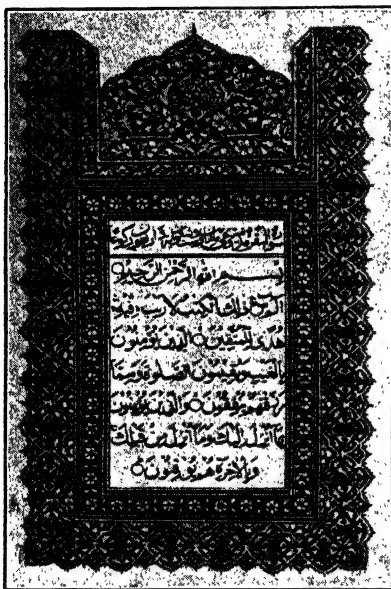 سورة البقرة
بسم الله الرحمن الرحيم
الم ذلك الكتب لا ريب فيه
هدى للمتقين الذين يؤمنون
بالغيب ويقيمون الصلوة ومما
رزقنهم ينفقون والذين يؤمنون
بما أنزل إليك وما أنزل من قبلك
وبالآخرة هم يوقنون